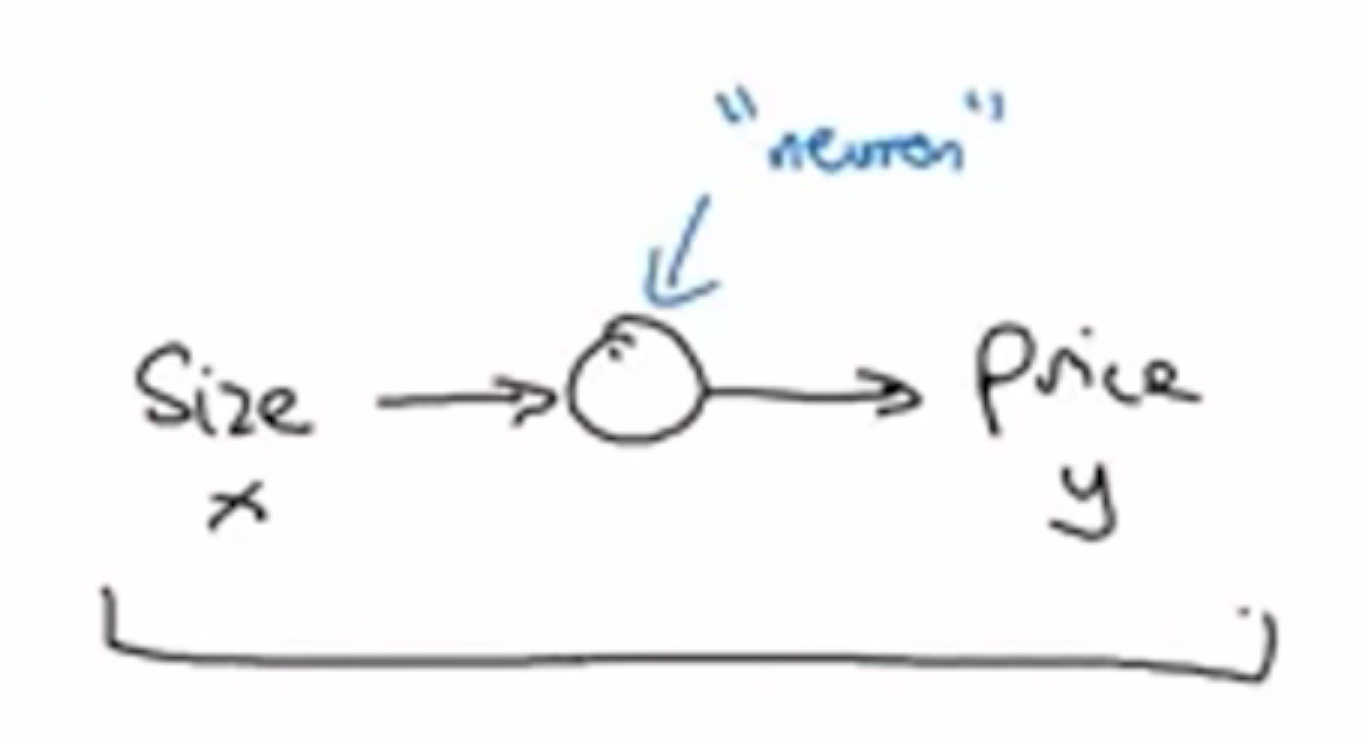 "neuron"
Size Price
x y